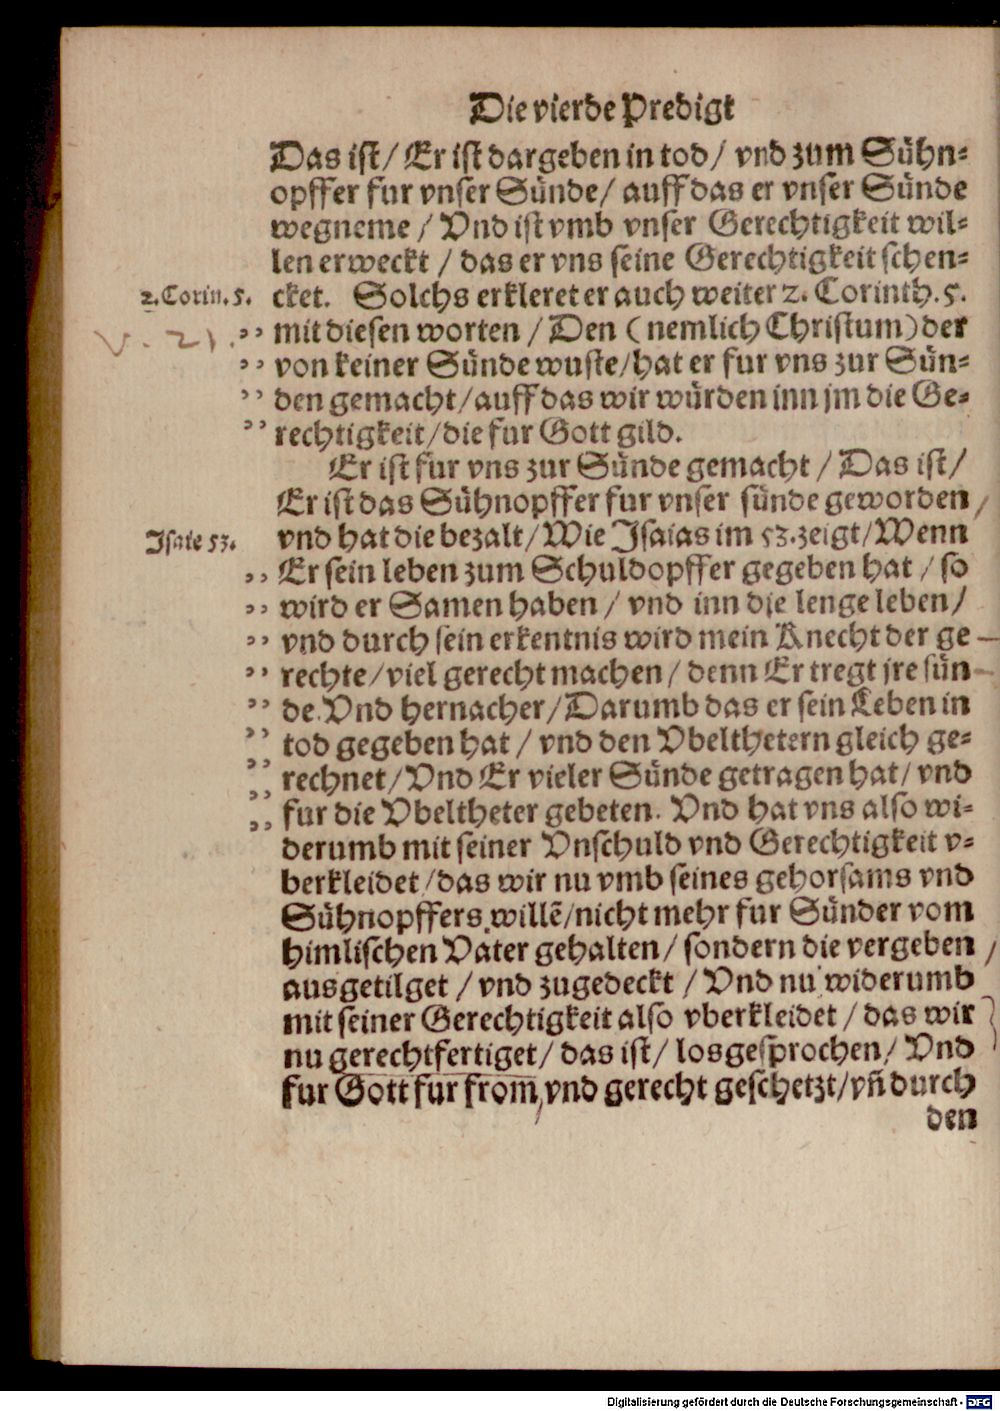 Die vierde Predigt
Das ist/ Er ist dargeben in tod/ vnd zum Sühn⸗
opffer fur vnser Sünde/ auff das er vnser Sünde
wegneme / Vnd ist vmb vnser Gerechtigkeit wil⸗
len erweckt / das er vns seine Gerechtigkeit schen⸗
2. Corin. 5. cket. Solchs erkleret er auch weiter 2. Corinth. 5.
V. 21. ,, mit diesen worten / Den ( nemlich Christum) der
,, von keiner Sünde wuste/ hat er fur vns zur Sün⸗
,, den gemacht/ auff das wir würden inn jm die Ge⸗
,, rechtigkeit/ die fur Gott gild.
Er ist fur vns zur Sünde gemacht / Das ist/
Er ist das Sühnopffer fur vnser sünde geworden /
Isaie 53. vnd hat die bezalt/ Wie Isaias im 53. zeigt/ Wenn
,, Er sein leben zum Schuldopffer gegeben hat / so
,, wird er Samen haben / vnd inn die lenge leben/
,, vnd durch sein erkentnis wird mein Knecht der ge
,, rechte/ viel gerecht machen/ denn Er tregt jre sün
,, de. Vnd hernacher/ Darumb das er sein Leben in
,, tod gegeben hat / vnd den Vbelthetern gleich ge⸗
,, rechnet/ Vnd Er vieler Sünde getragen hat/ vnd
,, fur die Vbeltheter gebeten. Vnd hat vns also wi⸗
,, derumb mit seiner Vnschuld vnd Gerechtigkeit v⸗
berkleidet/ das wir nu vmb seines gehorsams vnd
Sühnopffers willē/ nicht mehr fur Sünder vom
himlischen Vater gehalten/ sondern die vergeben /
ausgetilget / vnd zugedeckt / Vnd nu widerumb
mit seiner Gerechtigkeit also vberkleidet / das wir
nu gerechtfertiget/ das ist/ losgesprochen/ Vnd
fur Gott fur from, vnd gerecht geschetzt/ vn̄ durch
den
Digitalisierung gefördert durch die Deutsche Forschungsgemeinschaft - DFG